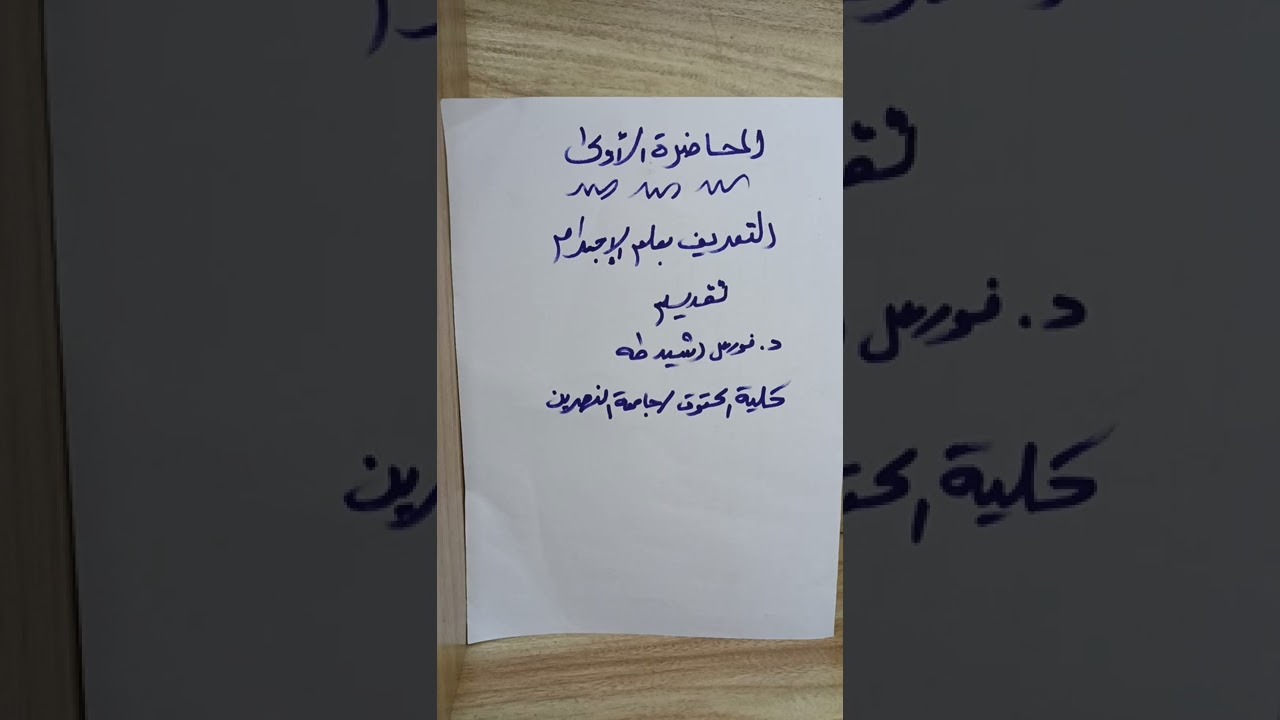 المحاضرة الأولى
التعريف بعلم الإجرام
تقديم
د. نورس رشيد طه
كلية الحقوق / جامعة النهرين